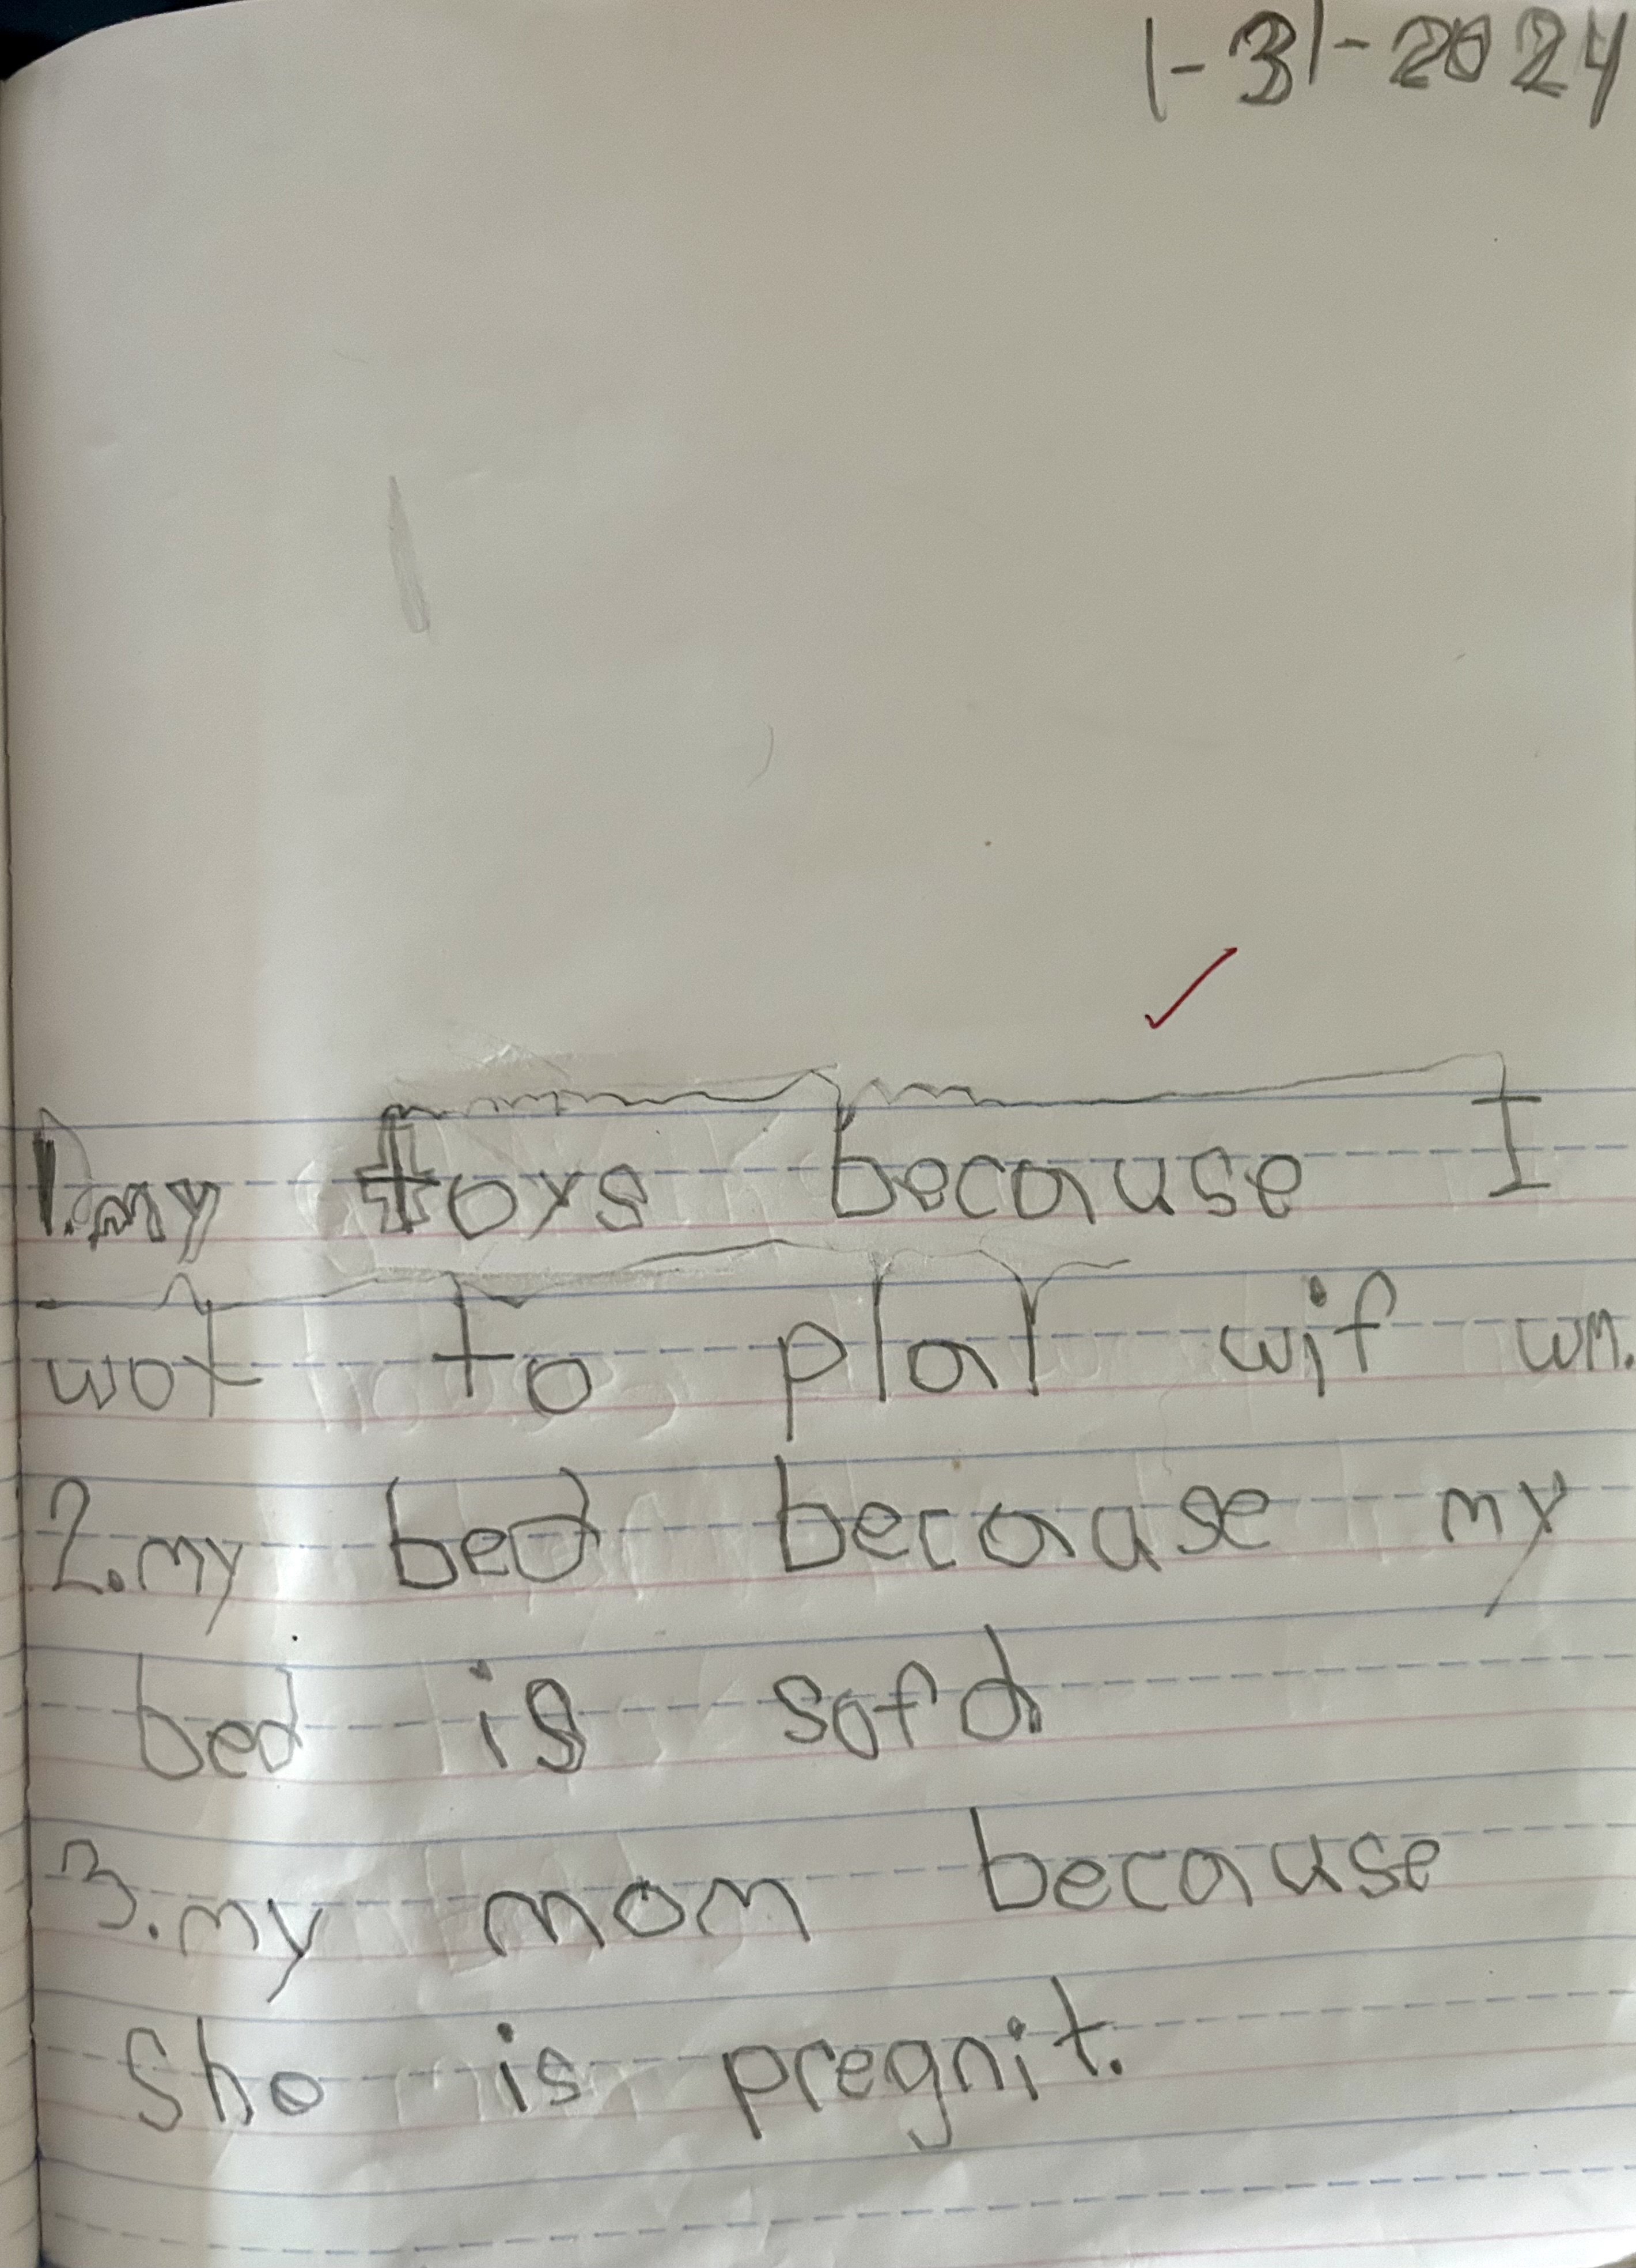 1-31-2024
1. my toys because I
wot to plal wif wm.
2. my bed becauase my
bed is sofd.
3. my mom because
Sho is pregnit.